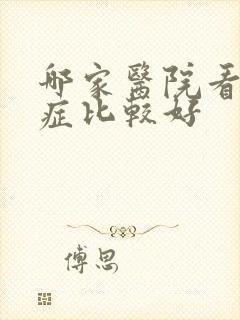 哪家醫院看
症比較好
傅思